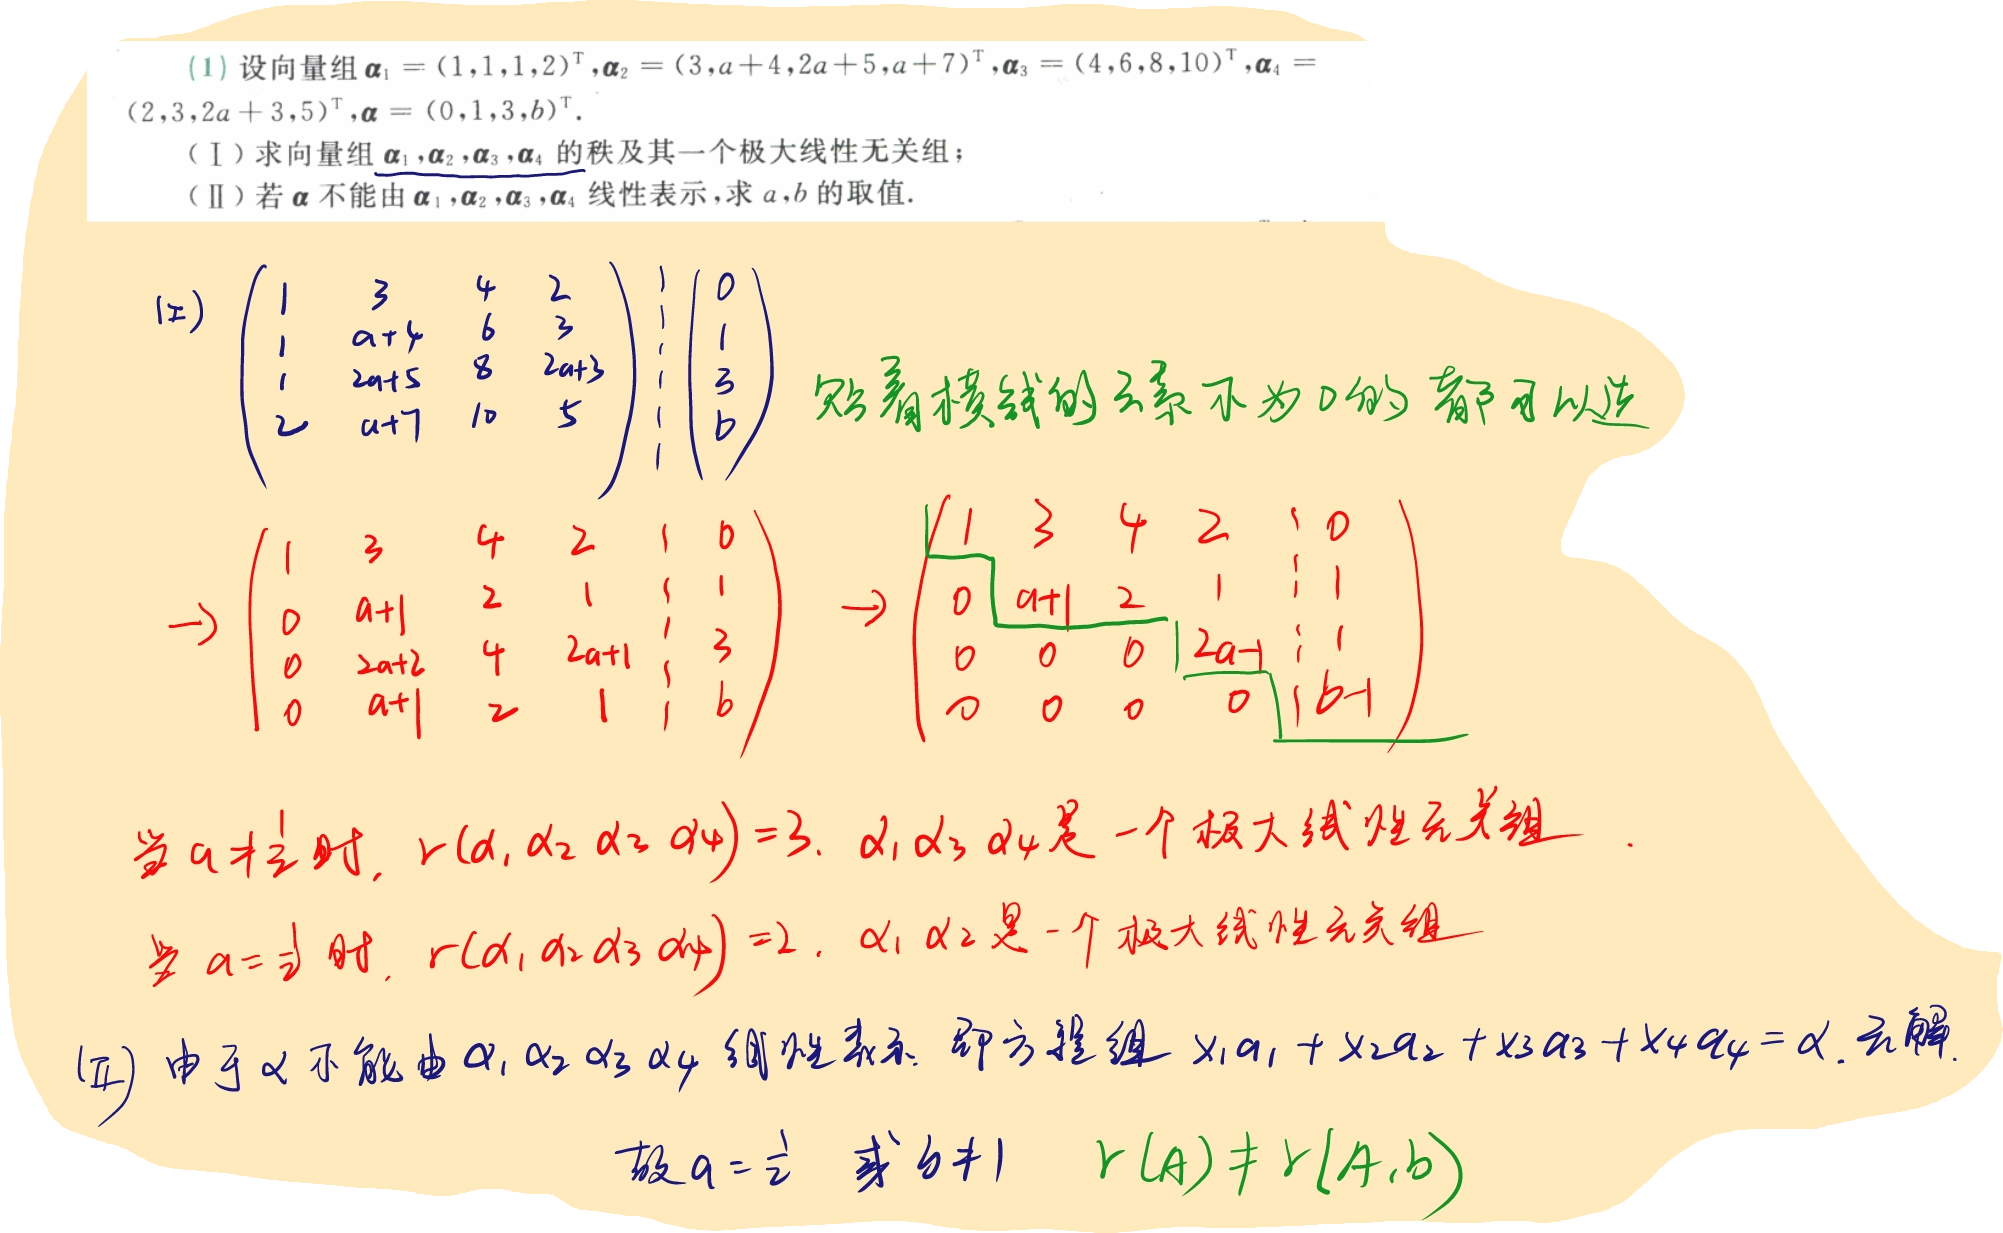 (1) 设向量组 α₁ = (1,1,1,2)ᵀ,α₂ = (3,a+4,2a+5,a+7)ᵀ,α₃ = (4,6,8,10)ᵀ,α₄ =
(2,3,2a+3,5)ᵀ,α = (0,1,3,b)ᵀ.
(Ⅰ)求向量组 α₁,α₂,α₃,α₄ 的秩及其一个极大线性无关组;
(Ⅱ)若 α 不能由 α₁,α₂,α₃,α₄ 线性表示,求 a,b 的取值.
(I) ( 1 3 4 2 ) ¦ ( 0 )
1 a+4 6 3 ¦ 1
1 2a+5 8 2a+3 ¦ 3
2 a+7 10 5 ¦ b
贴着横线的元素不为0的都可以选
→ ( 1 3 4 2 ¦ 0 )
0 a+1 2 1 ¦ 1
0 2a+2 4 2a+1 ¦ 3
0 a+1 2 1 ¦ b
→ ( 1 3 4 2 ¦ 0 )
0 a+1 2 1 ¦ 1
0 0 0 2a-1 ¦ 1
0 0 0 0 ¦ b-1
当 a≠1/2 时, r(α₁ α₂ α₃ α₄)=3. α₁ α₃ α₄是一个极大线性无关组.
当 a=1/2 时. r(α₁ α₂ α₃ α₄)=2. α₁ α₂是一个极大线性无关组
(II) 由于α不能由α₁ α₂ α₃ α₄ 线性表示. 即方程组 x₁α₁+x₂α₂+x₃α₃+x₄α₄=α.无解.
故a=1/2 或 b≠1 r(A)≠r(A,b)